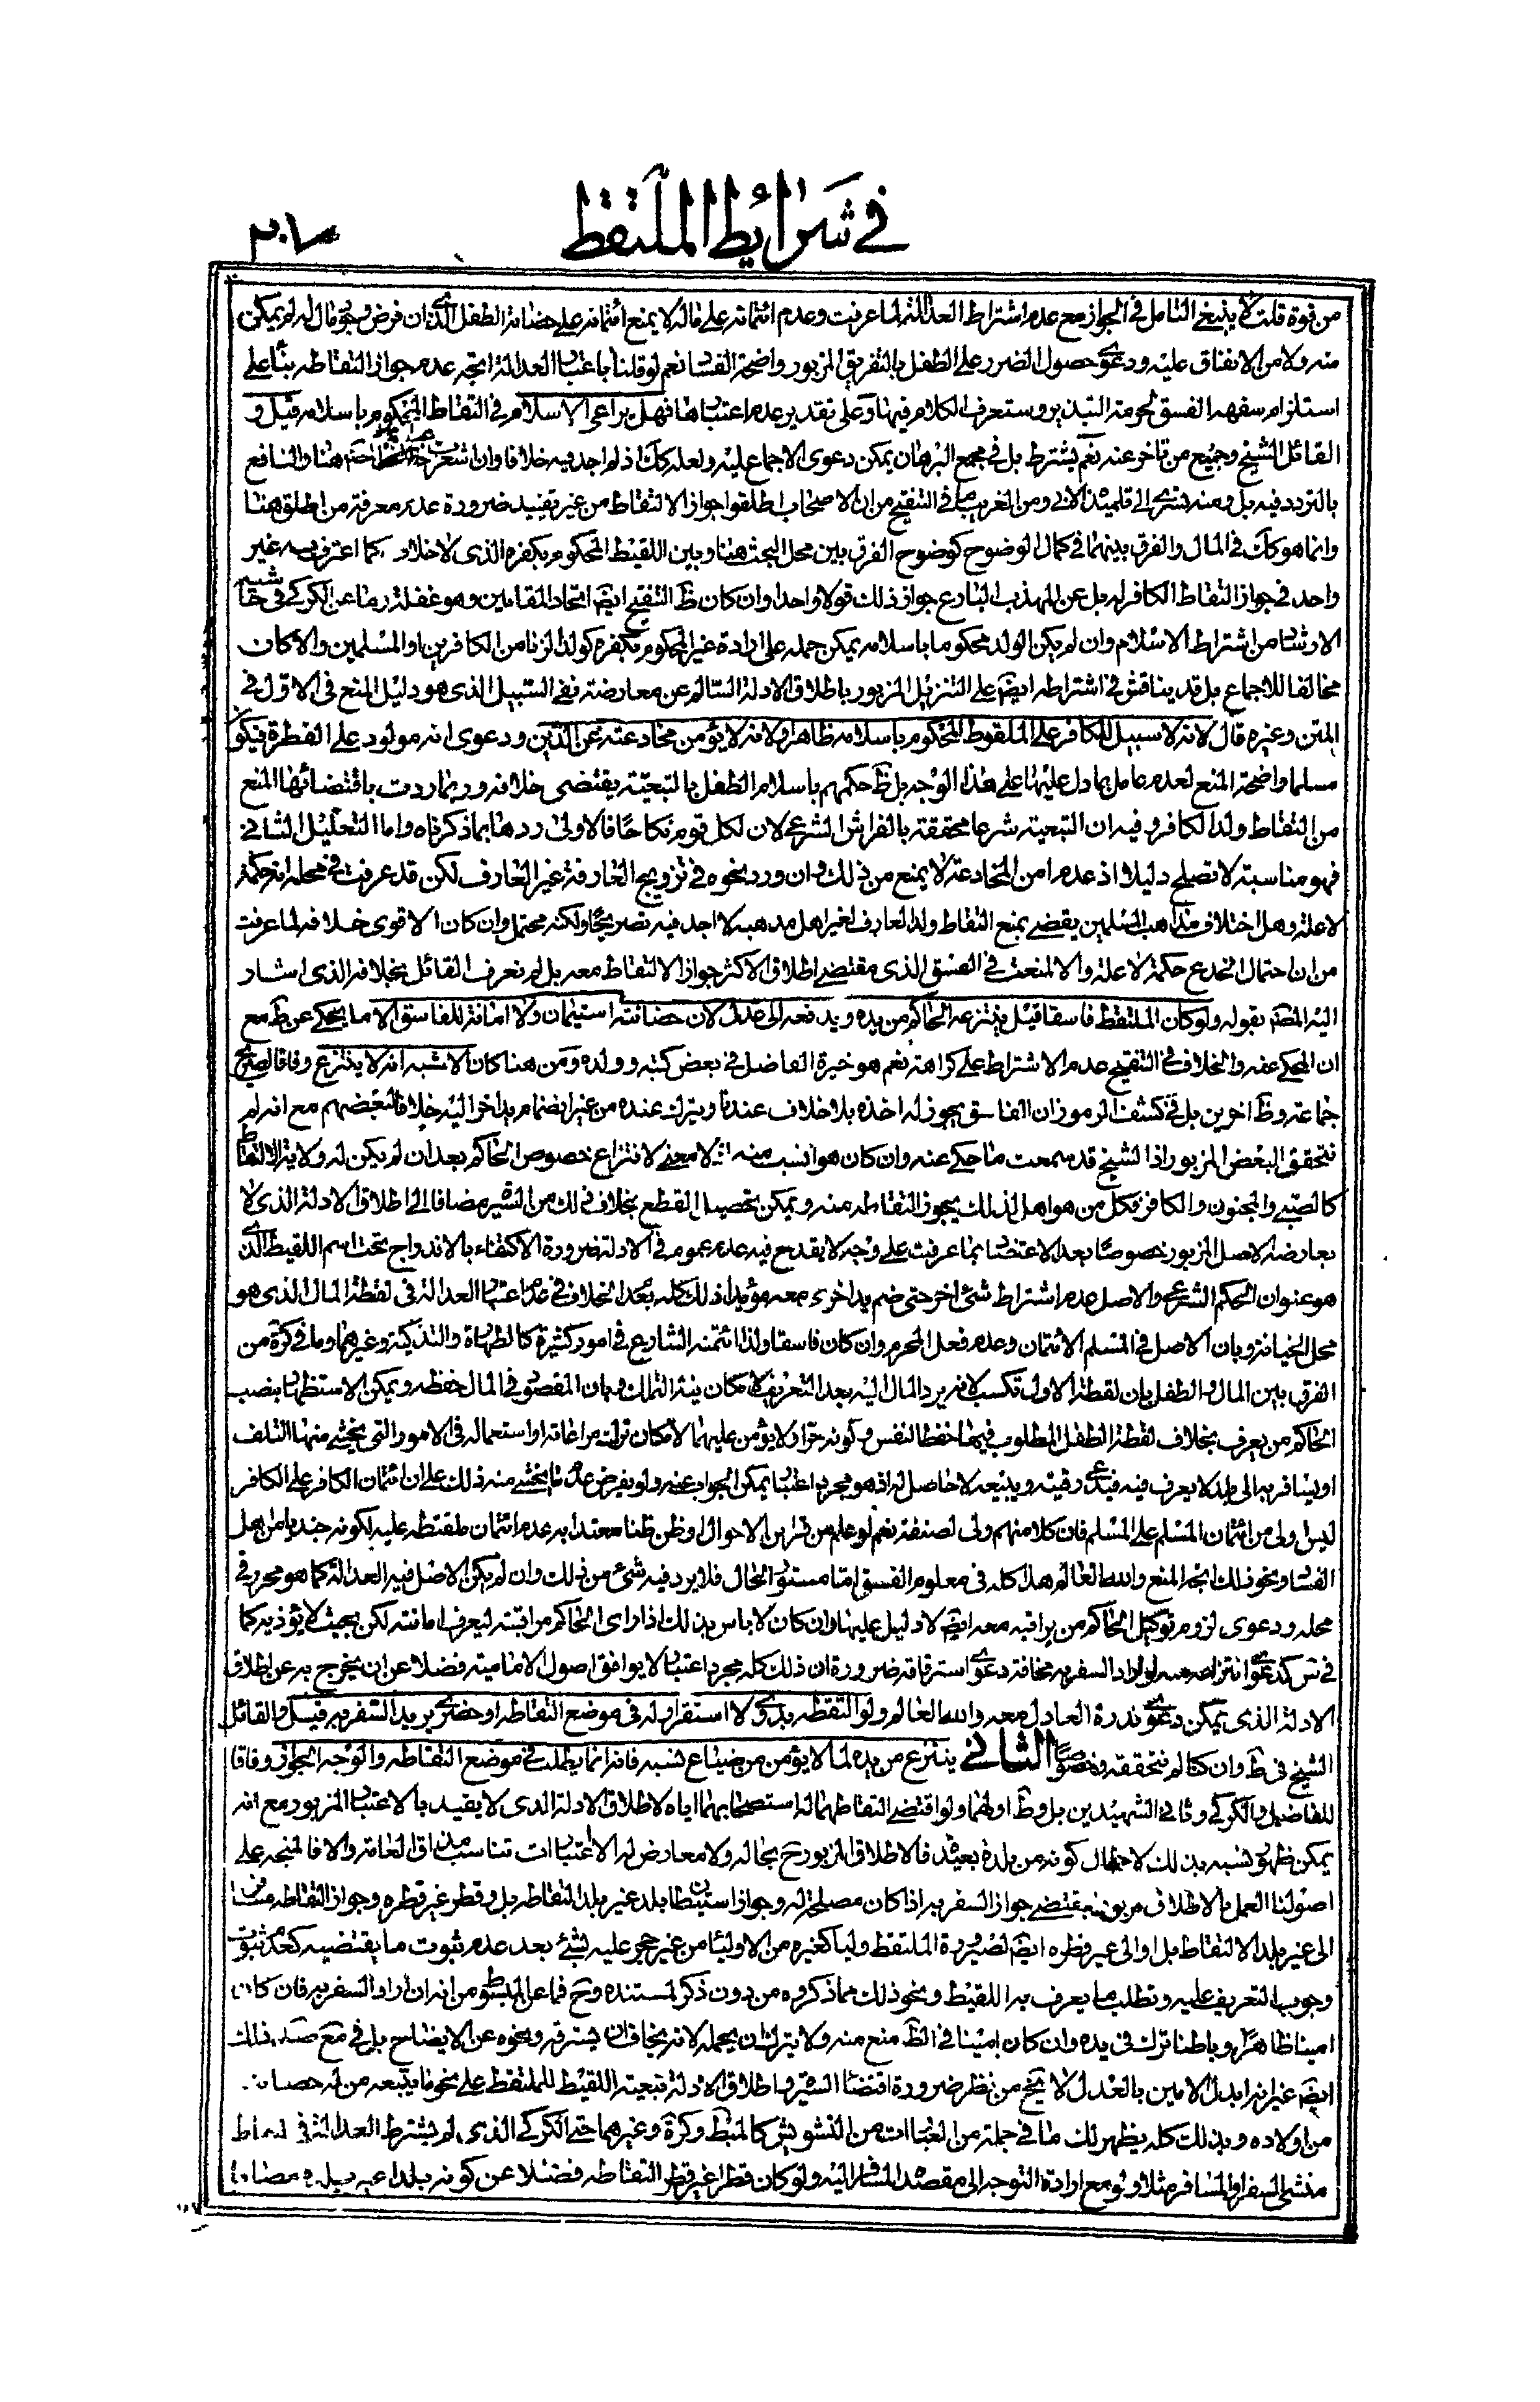 في شرائط الملتقط
من قوة قلت لا ينبغي التامل في الجواز مع عدم اشتراط العدالة لما عرفت وعدم ائتمانه على ماله لا يمنع ائتمانه على حضانة الطفل الذي ان فرض مال له لم يمكن
منه ولا من الانفاق عليه ودعوى حصول الضرر على الطفل بالتفريق المزبور واضحة الفساد نعم لو قلنا باعتبار العدالة اتجه عدم جواز التقاطه بناء على
استلزام سفهه الفسق لحرمة التبذير وستعرف الكلام فيها وعلى تقدير عدم اعتبارها فهل يراعى الاسلام في التقاط المحكوم باسلامه قيل و
القائل الشيخ وجميع من تاخر عنه نعم يشترط بل في مجمع البرهان يمكن دعوى الاجماع عليه ولعله كك اذ لم اجد فيه خلافا وان اشعرت هنا والنافع
بالتردد فيه بل ومنه سرى الى تلميذه الابي ومن الغريب ما في التنقيح من ان الاصحاب اطلقوا جواز الالتقاط من غير تقييد ضرورة عدم معرفة من اطلق هنا
وانما هو كك في المال والفرق بينهما في كمال الوضوح كوضوح الفرق بين محل البحث هنا وبين اللقيط المحكوم بكفره الذي لا خلاف كما اعترف به غير
واحد في جواز التقاط الكافر له بل عن المهذب البارع جواز ذلك قولا واحدا وان كان ظ التنقيح ايضا اتحاد المقامين وهو غفلة وما عن الكركي في حاشية
الارشاد من اشتراط الاسلام وان لم يكن الولد محكوما باسلامه يمكن حمله على ارادة غير المحكوم بكفره كولد الزنا من الكافرين او المسلمين والا كان
مخالفا للاجماع بل قد يناقش في اشتراطه ايضا على التنزيل المزبور باطلاق الادلة السالم عن معارضة نفي السبيل الذي هو دليل المنع في الاول في
المتن وغيره قال لانه لا سبيل للكافر على الملقوط المحكوم باسلامه ظاهرا ولانه لا يؤمن مخادعته عن الدين ودعوى انه مولود على الفطرة فيكون
مسلما واضحة المنع لعدم عامل بما دل عليها على هذا الوجه بل ظ حكمهم باسلام الطفل بالتبعية يقتضي خلافه وربما ردت باقتضائها المنع
من التقاط ولد الكافر وفيه ان التبعية شرعا محققة بالفراش الشرعي لان لكل قوم نكاحا فالاولى ردها بما ذكرناه واما التعليل الثاني
فهو مناسبة لا تصلح دليلا اذ عدم امن المخادعة لا يمنع من ذلك وان ورد نحوه في تزويج العارفة غير العارف لكن قد عرفت في محله انه حكمة
لا علة وهل اختلاف مذاهب المسلمين يقضي بمنع التقاط ولد العارف لغير اهل مذهبه لا اجد فيه تصريحا ولكنه محتمل وان كان الاقوى خلافه لما عرفت
من ان احتمال الخدع حكمة لا علة والا لمنعت في الفسق الذي مقتضى اطلاق الاكثر جواز الالتقاط معه بل لم نعرف القائل بخلافه الذي اشار
اليه المصنف بقوله ولو كان الملتقط فاسقا قيل ينتزعه الحاكم من يده ويدفعه الى عدل لان حضانته استيمان ولا امانة للفاسق الا ما يحكى عن ط مع
ان المحكي عنه والخلاف في التنقيح عدم الاشتراط على كراهة نعم هو خيرة الفاضل في بعض كتبه وولده ومن هنا كان الاشبه انه لا ينتزع وفاقا لصريح
جماعة وظ اخرين بل في كشف الرموز ان الفاسق يجوز له اخذه بلا خلاف عندنا ويترك عنده من غير انضمام يد اخر اليه خلافا لبعضهم مع انه لم
نتحقق البعض المزبور اذ الشيخ قد سمعت ما حكي عنه وان كان هو انسب منه لا معنى لانتزاع خصوص الحاكم بعد ان لم يكن له ولاية الالتقاط
كالصبي والمجنون والكافر فكل من هو اهل لذلك يجوز التقاطه منه ويمكن تحصيل القطع بخلاف ذلك من السير مضافا الى اطلاق الادلة الذي لا
يعارضه الاصل المزبور خصوصا بعد الاعتضاد بما عرفت على وجه لا يقدح فيه عدم عمومه في الادلة ضرورة الاكتفاء بالاندراج تحت اسم اللقيط الذي
هو عنوان الحكم الشرعي والاصل عدم اشتراط شئ اخر حتى ضم يد اخرى معه مؤيدا ذلك كله بعد الخلاف في عدم اعتبار العدالة في لقطة المال الذي هو
محل الخيانة وبان الاصل في المسلم الائتمان وعدم فعل المحرم وان كان فاسقا ولذا ائتمنه الشارع في امور كثيرة كالطهارة والتذكية وغيرهما وما في كرة من
الفرق بين المال والطفل بان لقطة الاول تكسب لانه يرد المال اليه بعد التعريف لامكان نية التملك وبان المقصود في المال حفظه ويمكن الاستظهار بنصب
الحاكم من يعرف بخلاف لقطة الطفل المطلوب فيها حفظ النفس وكونه حرا ولا يؤمن عليهما لامكان ترك مراعاته او استعماله في الامور التي يخشى منها التلف
او يسافر به الى بلد لا يعرف فيه فيدعي رقيته ويبيعه لا حاصل له اذ هو مجرد اعتبار يمكن الجواب عنه ولو بفرض عدم ما يخشى منه ذلك على ان ائتمان الكافر على الكافر
ليس اولى من ائتمان المسلم على المسلم فان كلا منهم ولي لصنفه نعم لو علم من قرائن الاحوال او ظن ظنا معتدا به عدم ائتمان ملتقطه عليه لكونه جنديا من اهل
الفساد ونحو ذلك اتجه المنع والله العالم هذا كله في معلوم الفسق اما مستور الحال فلا يرد فيه شئ من ذلك وان لم يكن الاصل فيه العدالة كما هو محرر في
محله ودعوى لزوم توكيل الحاكم من يراقبه معه ايضا لا دليل عليها وان كان لا باس بذلك اذا راى الحاكم مراقبته ليعرف امانته لكن بحيث لا يؤذيه كما
في س كدعوى انتزاعه منه لو اراد السفر به مخافة دعوى استرقاقه ضرورة ان ذلك كله مجرد اعتبار لا يوافق اصول الامامية فضلا عن ان يخرج به عن اطلاق
الادلة الذي يمكن دعوى ندرة العادل معه والله العالم ولو التقطه بدوي لا استقرار له في موضع التقاطه او حضري يريد السفر به قيل والقائل
الشيخ في ط وان كنا لم نتحققه وخصوصا الثاني ينتزع من يده لما لا يؤمن من ضياع نسبه فانه انما يطلب في موضع التقاطه والوجه الجواز وفاقا
للفاضل والكركي وثاني الشهيدين بل وظ اولهما ولو اقتضى التقاطهما له استصحابهما اياه لاطلاق الادلة الذي لا يقيد بالاعتبار المزبور مع انه
يمكن ظهور نسبه بذلك لاحتمال كونه من بلدة بعيدة فالاطلاق المزبور ح بحاله ولا معارض له الا اعتبارات تناسب مذاق العامة والا فالمتجه على
اصولنا العمل بالاطلاق بل مقتضى جواز السفر به اذا كان مصلحة له وجواز استيطان بلد غير بلد التقاطه بل وقطر غير قطره وجواز التقاطه
الى غير بلد الالتقاط بل او الى غير قطره ايضا لصيرورة الملتقط وليا كغيره من الاولياء من غير حجر عليه لشئ بعد عدم ثبوت ما يقتضيه كعدم ثبوت
وجوب التعريف عليه وتطلب ما يعرف به اللقيط ونحو ذلك مما ذكروه من دون ذكر لمستنده وح فما عن المبسوط من انه ان اراد السفر به فان كان
امينا ظاهرا وباطنا ترك في يده وان كان امينا في الظ منع منه ولا يترك ان يحمله لانه يخاف ان يسترقه ونحوه عن الايضاح بل في مع صد ذلك
ايضا غير انه ابدل الامين بالعدل لا يخ من نظر ضرورة اقتضاء السير واطلاق الادلة تبعية اللقيط للملتقط على نحو ما يتبعه من له حضانته
من اولاده وبذلك كله يظهر لك ما في جملة من العبارات من التشويش كالمبسوط وكرة وغيرهما حتى الكركي الذي لم يشترط العدالة في
منشئ السفر او المسافر مثلا ولو مع ارادة التوجه الى مقصد المسافر اليه ولو كان قطرا غير قطر التقاطه فضلا عن كونه بلدا غير بلده